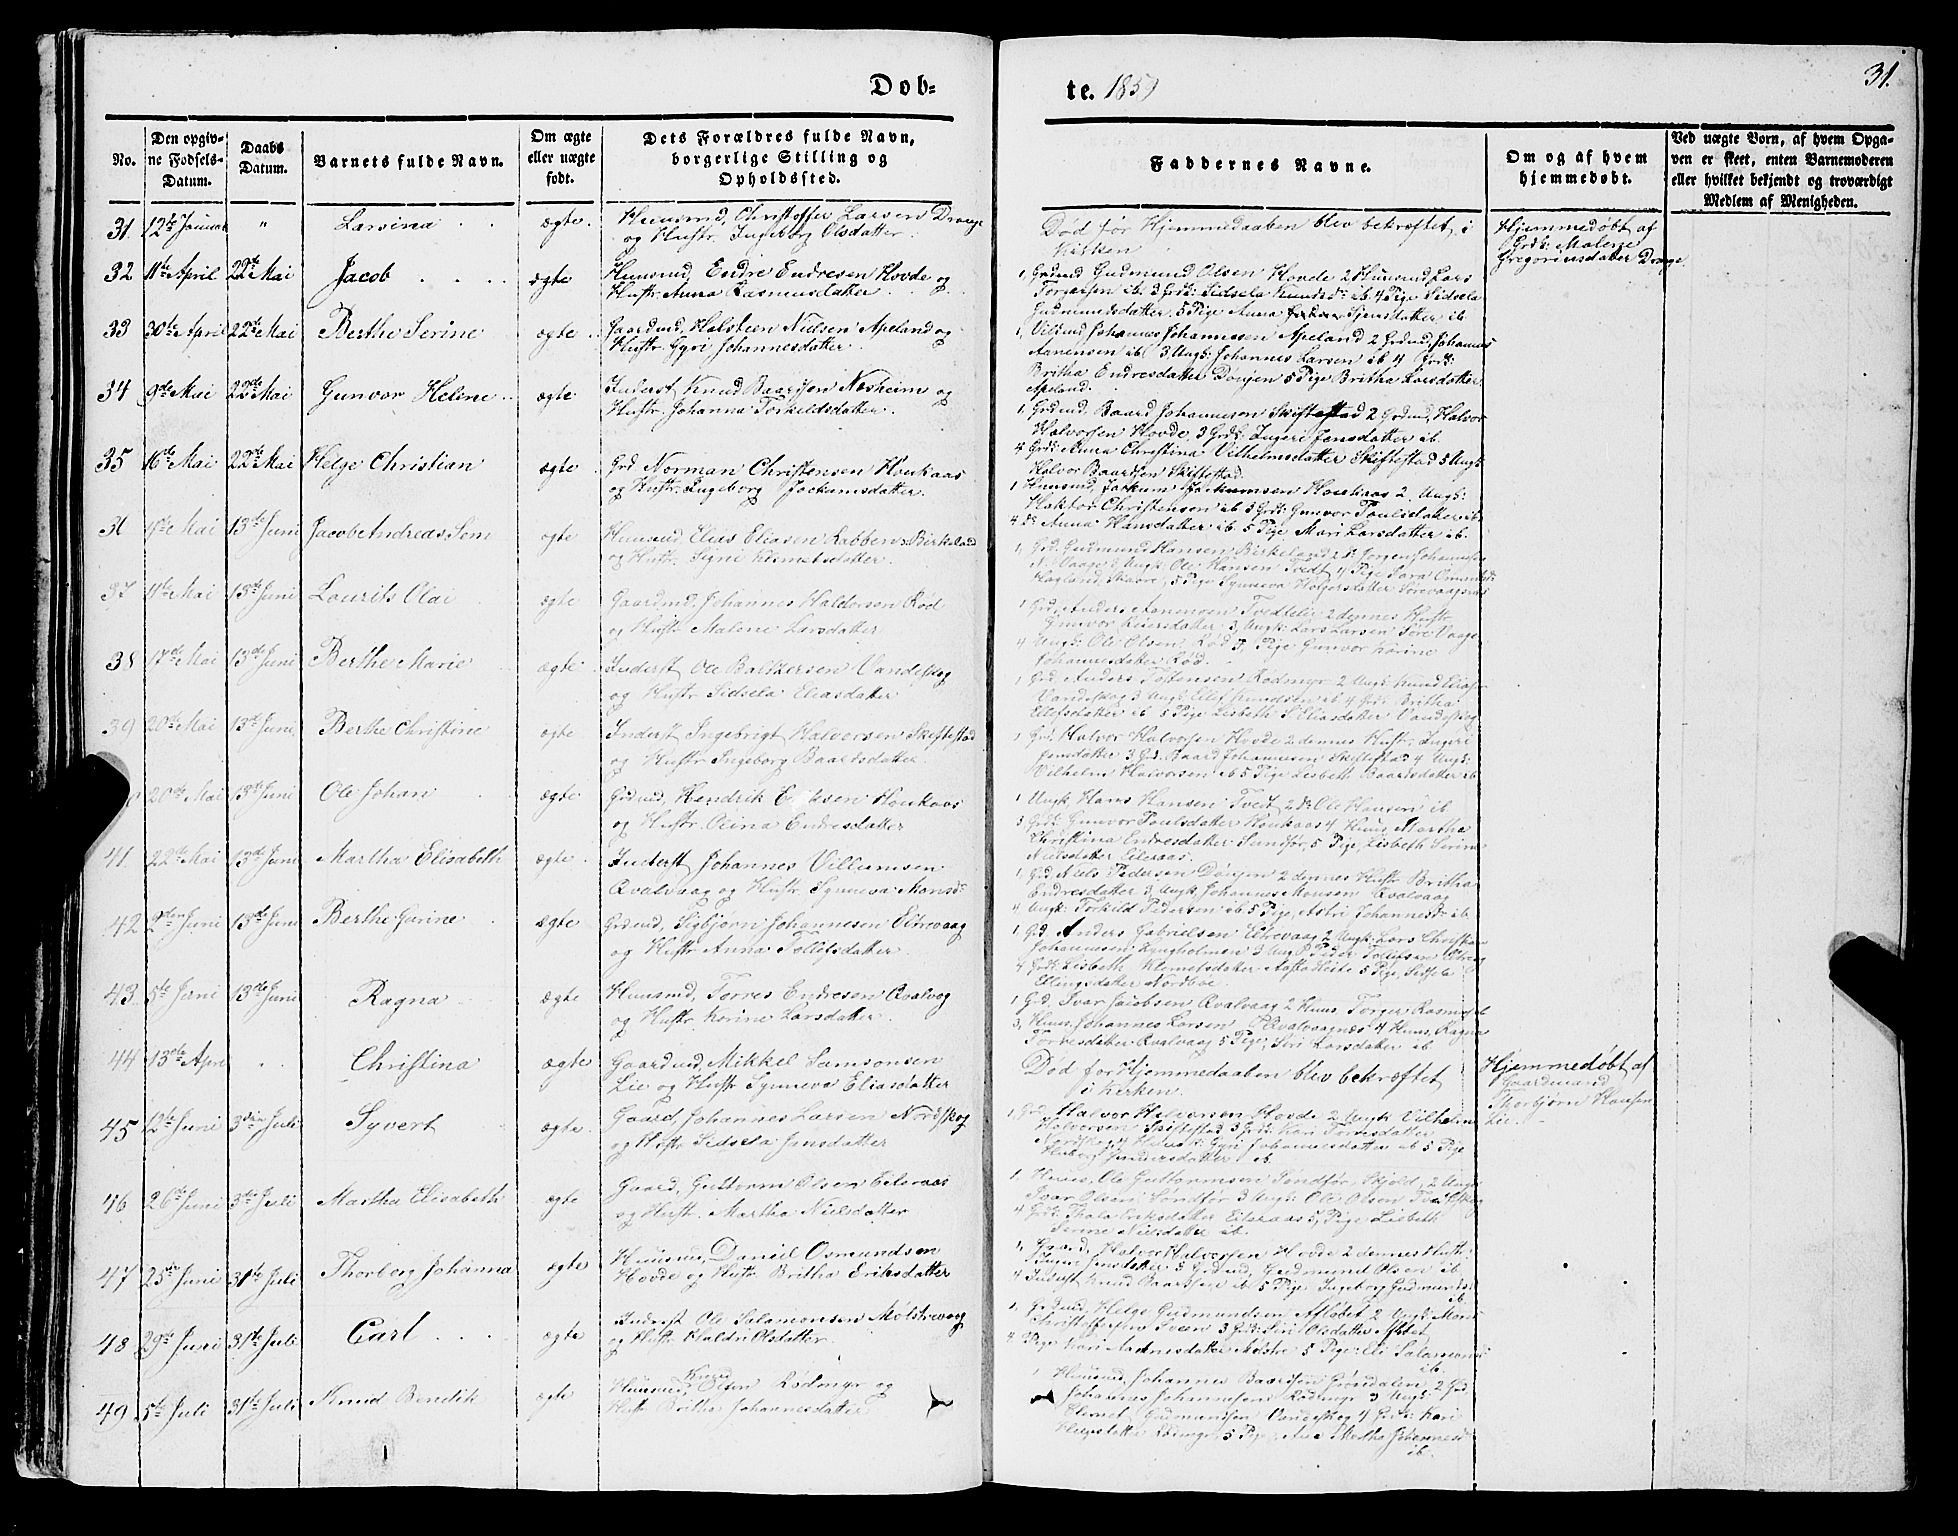 Døb-
te. 1859
31.
No.
Den opgiv-
ne Fødsels-
Datum.
Daabs
Datum.
Barnets fulde Navn.
Om ægte
eller uægte
født.
Dets Forældres fulde Navn,
borgerlige Stilling og
Opholdssted.
Faddernes Navne.
Om og af hvem
hjemmedøbt.
Ved uægte Børn, af hvem Opga-
ven er skeet, enten Barnemoderen
eller hvilket bekjendt og troværdigt
Medlem af Menigheden.
31. 12te Januar " Larsina ægte. Huusmd, Christoffer Larsen Drange
og Hustr. Ingeborg Olsdatter.
Død før Hjemmedaaben blev bekræftet i
Kirken.
Hjemmedøbt af
Grdk: Malene
Gregoriusdatter Drange.
32 11te April 22de Mai Jacob ægte Huusmd, Endre Endresen Hovde og
Hustr. Anna Rasmusdatter
1, Grdmd Gudmund Olsen Hovde 2 Huusmd Lars
Torgersen ib. 3 Grdk: Sidsela Knudsd: ib. 4 Pige Sidsela
Gudmundsdatter 5 Pige Anna datter ib
33 30te April 22de Mai Berthe Serine ægte Gaardmd, Halsteen Nielsen Apeland og
Hustr. Gyri Johannesdatter.
1, Johannes Johannesen Apeland 2 Grdmd, Johannes
Aanensen ib 3 Ungk: Johannes Larsen ib 4 Grdk:
Britha Endresdatter Dønjen 5 Pige Britha Larsdatter
Apeland.
34 9de Mai 22de Mai Gunvor Helene ægte Inderst Knud Baardsen Næsheim og
Hustr. Johanna Torkildsdatter.
1. Grdmd. Baard Johannesen Skiftestad 2 Grdmd, Halvor
Halvorsen Hovde, 3 Grdk: Ingeri Jensdatter ib.
4 Grdk: Anna Christina Vilhelmsdatter Skiftestad 5 Ungk:
Halvor Baardsen Skiftestad.
35 16de Mai 22de Mai Helge Christian ægte Grd Norman Christensen Houkaas
og Hustr. Ingeborg Jockumsdatter.
1 Huusmd, Jockum Jockumsen Houkaas 2. Ungk:
Christensen ib 3 Grdk: Gunvor Poulsdatter ib
4 do Anna Hansdatter ib. 5 Pige Mari Larsdatter ib.
36 11te Mai 13de Juni Jacob Andreas Sem ægte Huusmd Elias Eliasen Rabben Birkeland
og Hustr. Signe Klemetsdatter.
1, Grd. Gudmund Hansen Birkeland 2 do Jørgen Johannesen
Vaage 3 Ungk: Ole Hansen Tvedt 4 Pige Sara
5 Pige Synneva Holgersdatter
37 11te Mai 13de Juni Laurits Olai ægte Gaardmd, Johannes Haldorsen Rød
og Hustr Malene Larsdatter
1 Grd, Anders Aanensen Tvedtelie 2 dennes Hustr
Gunvor 3 Ungk: Lars Larsen Søre Vaage
4 Ungk: Ole Olsen Rød 5, Pige Gunvor Karine
Johannesdatter Rød.
38 17de Mai 13de Juni Berthe Marie ægte Inderst Ole Vandeskog
og Hustr Sidsela Eliasdatter
1 Grd. Anders Rødmyr 2 Ungk: Knud Elias
Vandeskog 3 Ungk: Knudsen ib 4 Grdk Britha
datter ib 5 Pige Lisbeth S. Eliasdatter Vandeskog
39 20de Mai 13de Juni Berthe Christine ægte Inderst Ingebrigt Halvorsen Skiftestad
og Hustr Ingeborg Baardsdatter.
1 Grd, Halvor Halvorsen Hovde 2 dennes Hustr. Ingeri
Jensdatter 3 Grd. Baard Johannesen Skiftestad 4 Ungk:
Vilhelm Halvorsen ib 5 Pige Lisbeth Baardsdatter ib
20de Mai 13de Juni Ole Johan ægte Grdmd, Hendrik Eriksen Houkaas
og Hustr. Olina Endresdatter
1 Ungk Hans Hansen Tvedt 2 do Ole Hansen ib
3 Grdk: Gunvor Poulsdatter Houkaas 4 Huus Martha
Christina Endresdatter Sundfør, 5 Pige Lisbeth Serine
Nielsdatter Eileraas.
41 22de Mai 13de Juni Martha Elisabeth ægte Inderst Johannes Villumsen
Qvalvaag og Hustr. Synneva Monsd:
1, Grd, Niels Pedersen Dønjen 2 dennes Hustr Britha
Endresdatter 3 Ungk Johannes Monsen Qvalvaag
4 Ungk: Torkild Pedersen ib. 5 Pige, Astri Johannesd: ib.
42 2den Juni 13de Juni Berthe Gurine ægte Grdmd, Sigbjørn Johannesen Eltrevaag
og Hustr. Anna Tollefsdatter
1 Grd Anders Gabrielsen Eltrevaag 2 Ungk Lars Christian
Johannesen 3 Ungk Peder Tollefsen
4 Grdk: Lisbeth Klemetsdatter 5 Pige, Sidsela
Ellingsdatter Nordboe.
43 5te Juni 13de Juni Ragna ægte Huusmd, Torres Endresen Qvalvog
og Hustr. Karine Larsdatter
1 Grd, Ivar Jacobsen Qvalvaag 2 Huus Torger Rasmus
3, Huus, Johannes Larsen Qvalvaagnæs 4 Huus, Ragna
Torresdatter Qvalvaag 5 Pige, Siri Larsdatter ib
44 13de April " Christina ægte Gaardmd Mikkel Samsonsen
Lie og Hustr Synneva Eliasdatter
Død før Hjemmedaaben blev bekræftet
i Kirken.
Hjemmedøbt af
Gaardmand
Thorbjørn Hansen
Lie.
45 12te Juni 3die Juli Syvert ægte Gaard, Johannes Larsen Nordskog
og Hustr Sidsela Jensdatter
1, Grd. Halvor Halvorsen Hovde 2 Ungk Vilhelm
Halvorsen Skiftestad 3 Grdk: Kari Torresdatter
Nordskog 4 Gyri Johannesdatter ib 5 Pige
datter ib.
46 26de Juni 3die Juli Martha Elisabeth ægte Gaard, Guttorm Olsen Eileraas
og Hustr. Martha Nielsdatter
1. Huus, Ole Guttormsen Sundfør, Skjold, 2 Ungk
Ivar Olsen Sundfør 3 Ungk: Ole Olsen
4 Grdk: Eriksdatter Eileraas 5, Pige Lisbeth
Serine Nielsdatter ib.
47 25de Juni 31te Juli Thorberg Johanna ægte Huusmd, Daniel Osmundsen
Hovde og Hustr Britha Eriksdatter
1, Gaard, Halvor Halvorsen Hovde 2 dennes Hustr:
Inger Jensdatter 3 Grdmd, Gudmund Olsen ib
4 Inderst Knud Baardsen ib 5 Pige Ingeborg Gudmundsd:
ib.
48 29de Juni 31te Juli Carl ægte Inderst Ole Salamonsen Molstrevaag
og Hustr. Olsdatter.
1, Grdmd, Helge Gudmundsen 2 Ungk: Mons
Christoffersen Sveen 3 Grdk: Siri Olsdatter
4 Pige Kari Aadnesdatter Mølstre 5 Pige: Eli Salamonsd:
ib.
49 5te Juli 31te Juli Knud Bendik ægte Huusmd, Knud Olsen Rødmyr og
Hustr Britha Johannesdatter
1 Huusmd, Johannes Baardsen Grøndalen, 2 Grd.
Johannes Johannesen Rødmyr 3 Ungk:
Klemet Gudmundsen Vandeskog 4 Grdk: Kari
Rødmyr 5 Pige, Martha Johannesd:
ib.